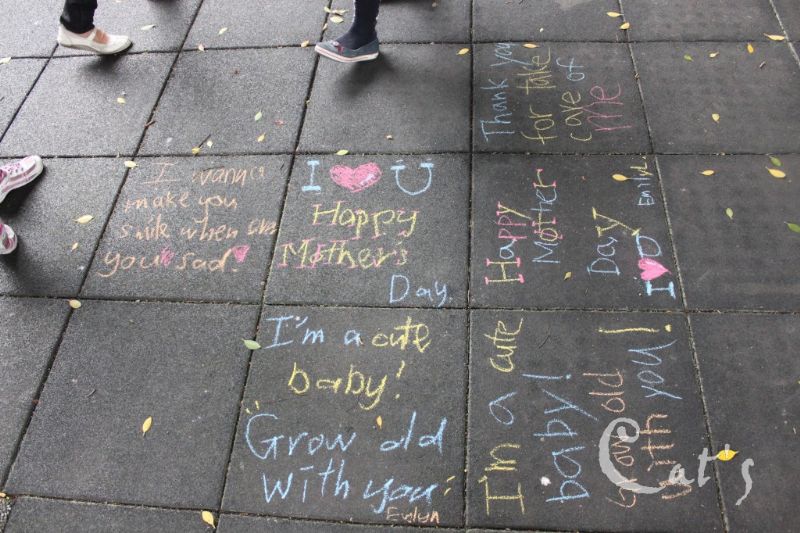 Thank you
for take
care of
me
I wanna
make you
smile when
you sad.
I U
Happy
Mother's
Day
Happy
Mother
Day
I U
Emily
I'm a cute
baby!
Grow old
with you
Evelyn
I'm a cute
baby!
Grow old
with you!
Cat's